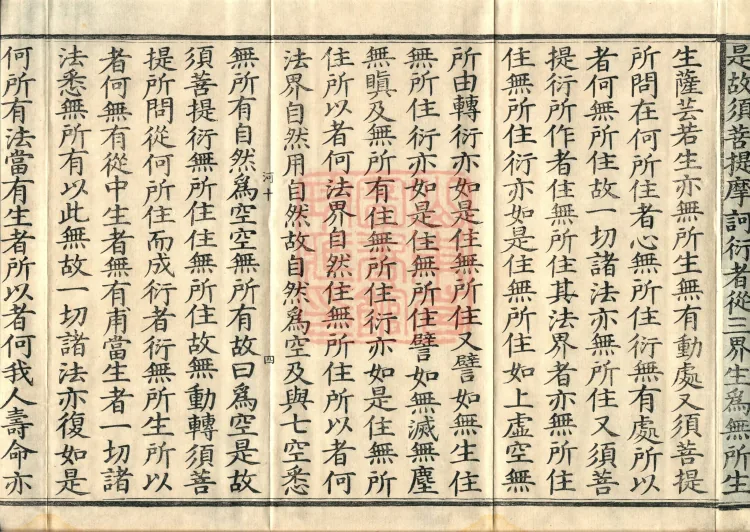 是故須菩提摩訶衍者從三界生爲無所生
生薩芸若生亦無所生無有動處又須菩提
所問在何所住者心無所住衍無有處所以
者何無所住故一切諸法亦無所住又須菩
提衍所作者住無所住其法界者亦無所住
住無所住衍亦如是住無所住如上虛空無
所由轉衍亦如是住無所住又譬如無生住
無所住衍亦如是住無所住譬如無滅無塵
無瞋及無所有住無所住衍亦如是住無所
住所以者何法界自然住無所住所以者何
法界自然用自然故自然爲空及與七空悉
河十
四
無所有自然爲空空無所有故曰爲空是故
須菩提衍無所住住無所住故無動轉須菩
提所問從何所住而成衍者衍無所生所以
者何無有從中生者無有甫當生者一切諸
法悉無所有以此無故一切諸法亦復如是
何所有法當有生者所以者何我人壽命亦